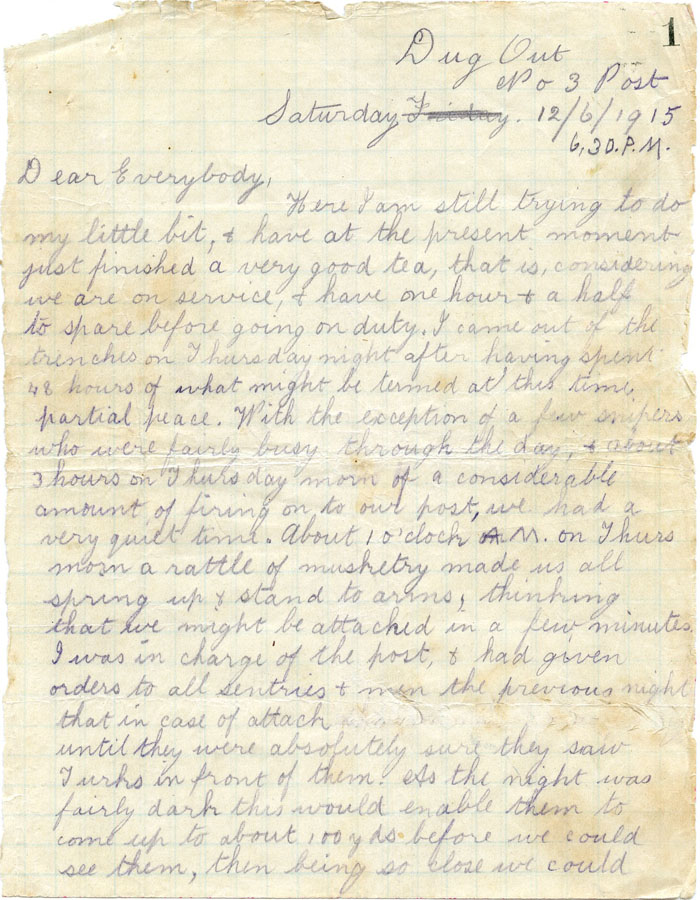 1
Dug Out
No 3 Post
Saturday Friday. 12/6/1915
6.30.P.M.
Dear Everybody,
Here I am still trying to do
my little bit, & have at the present moment
just finished a very good tea, that is, considering
we are on service, & have one hour & a half
to spare before going on duty. I came out of the
trenches on Thursday night after having spent
48 hours of what might be termed at this time,
partial peace. With the exception of a few snipers
who were fairly busy through the day, & about
3 hours on Thursday morn of a considerable
amount of firing on to our post, we had a
very quiet time. About 1 o'clock A M. on Thurs
morn a rattle of musketry made us all
spring up & stand to arms, thinking
that we might be attacked in a few minutes.
I was in charge of the post, & had given
orders to all sentries & men the previous night
that in case of attack
until they were absolutely sure they saw
Turks in front of them. As the night was
fairly dark this would enable them to
come up to about 100 yds before we could
see them, then being so close we could